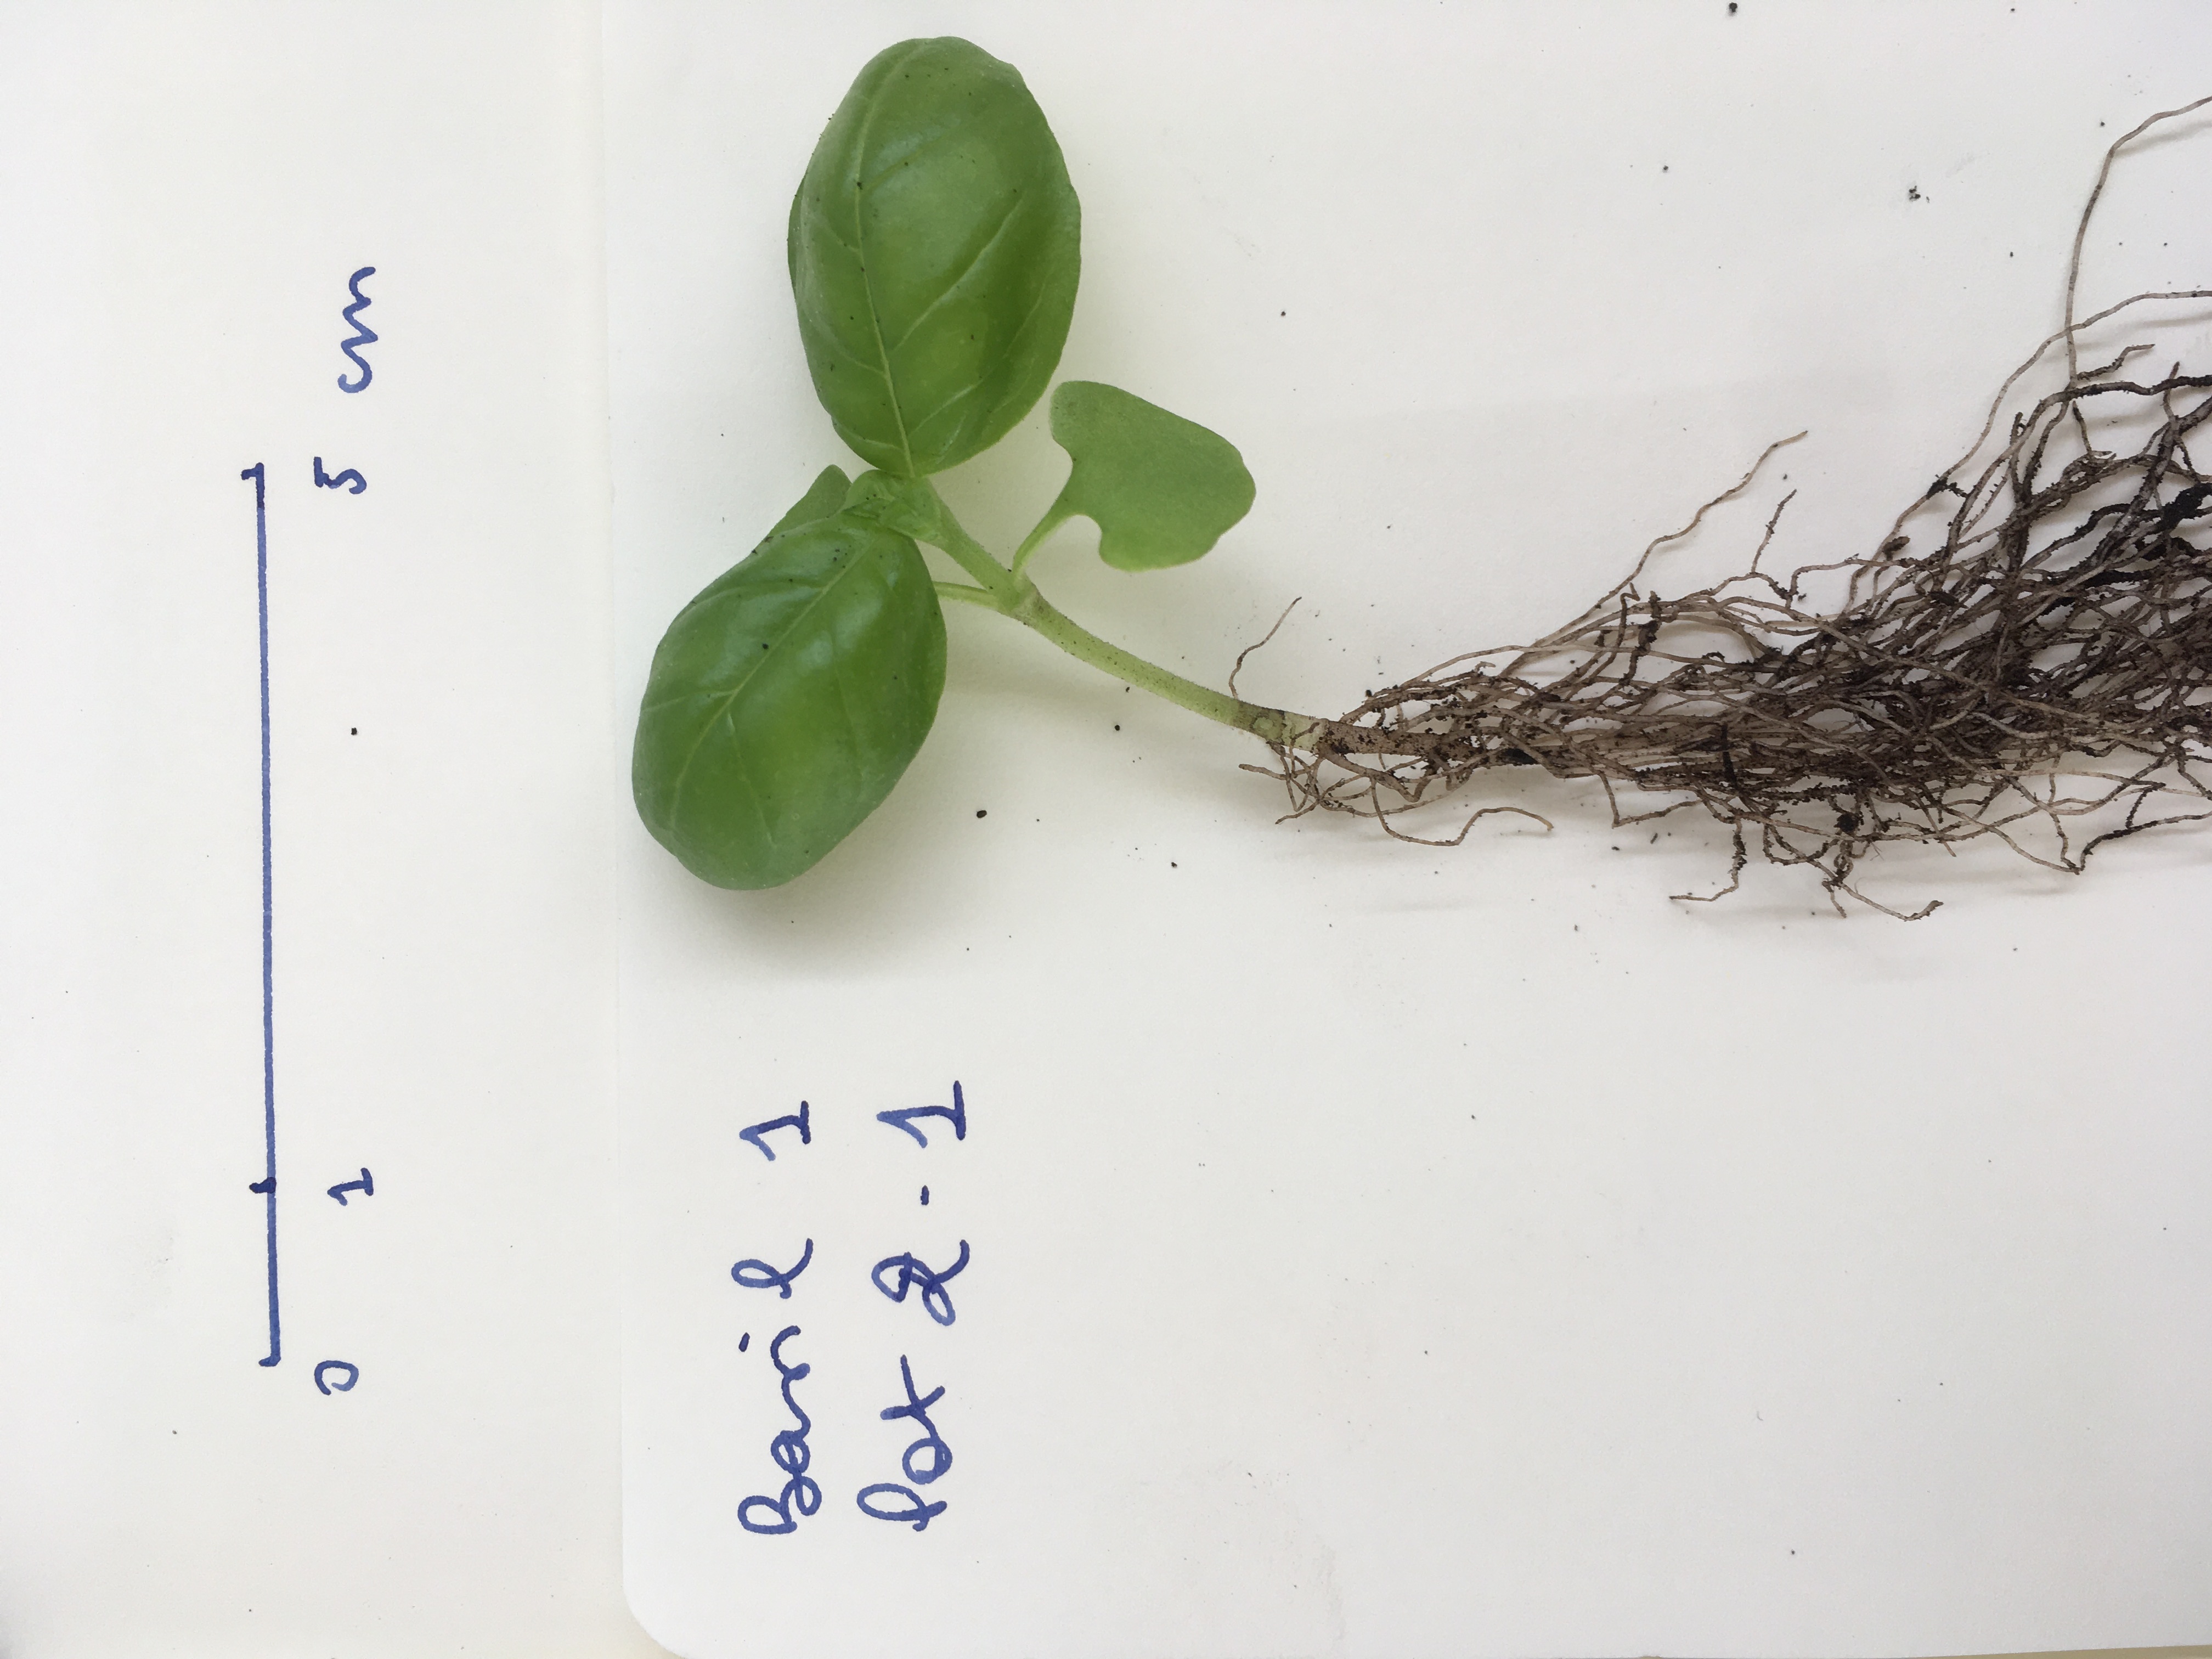 0 1 5 cm
Basil 1
Pot 2-1